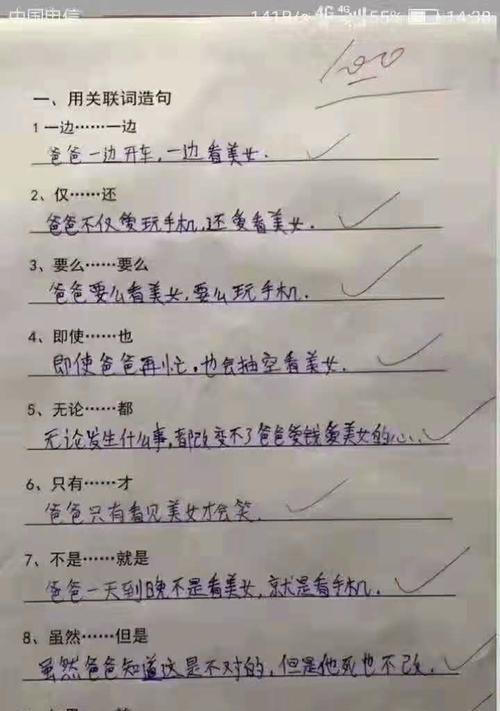 中国电信 141B/s 4G 4G 55% 14:38
100
一、用关联词造句
1一边……一边
爸爸一边开车，一边看美女.
2、仅……还
爸爸不仅爱玩手机,还爱看美女.
3、要么……要么
爸爸要么看美女,要么玩手机.
4、即使……也
即使爸爸再忙，也会抽空看美女.
5、无论……都
无论发生什么事,都改变不了爸爸爱钱爱美女的心..
6、只有……才
爸爸只有看见美女才会笑.
7、不是……就是
爸爸一天到晚不是看美女,就是看手机.
8、虽然……但是
虽然爸爸知道这是不对的,但是他死也不改.